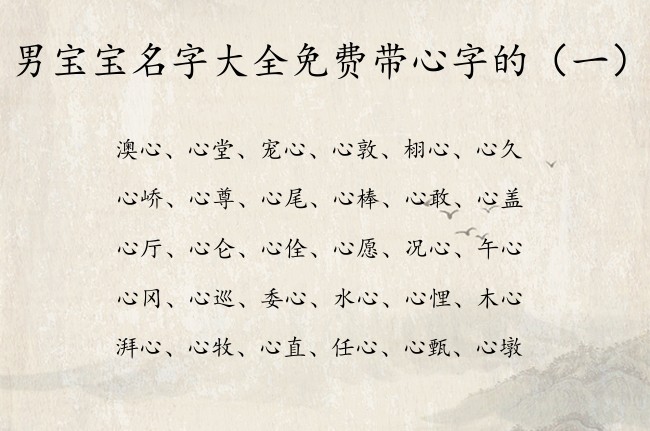 男宝宝名字大全免费带心字的（一）
澳心、心堂、宠心、心敦、栩心、心久
心峤、心尊、心尾、心棒、心敢、心盖
心厅、心仑、心佺、心愿、况心、午心
心冈、心巡、委心、水心、心悝、木心
湃心、心牧、心直、任心、心甄、心墩